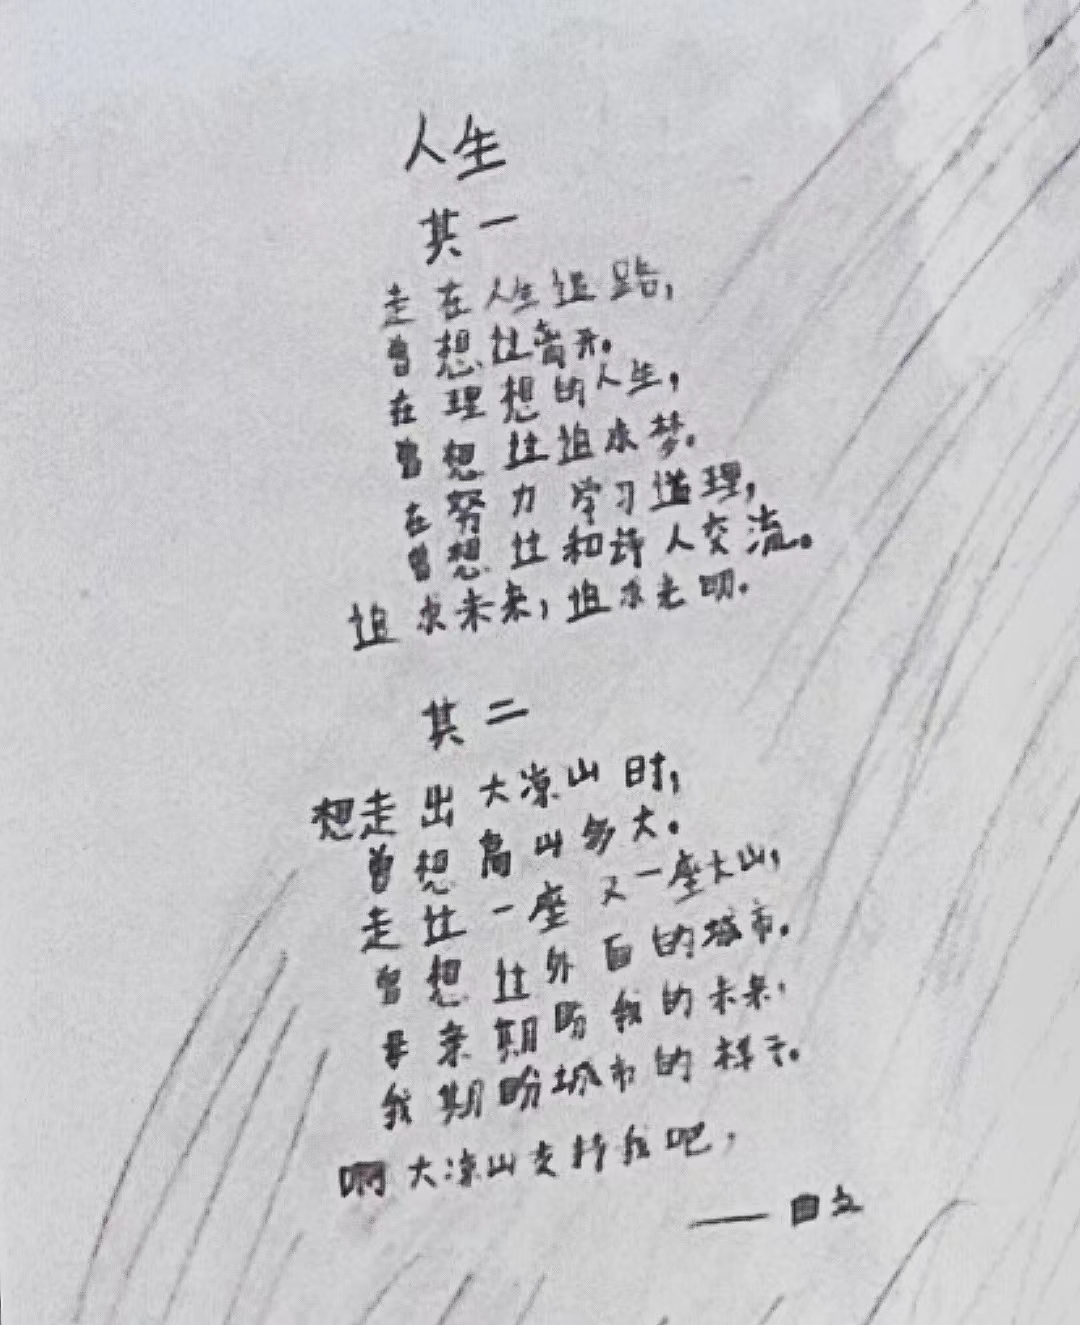 人生
其一
走在人生道路,
曾想过离开。
在理想的人生,
曾想过追求梦。
在努力学习道理,
曾想过和诗人交流。
追求未来,追求光明。
其二
想走出大凉山时,
曾想高山多大。
走过一座又一座大山,
曾想过外面的城市。
母亲期盼我的未来,
我期盼城市的样子。
啊大凉山支持我吧,
——